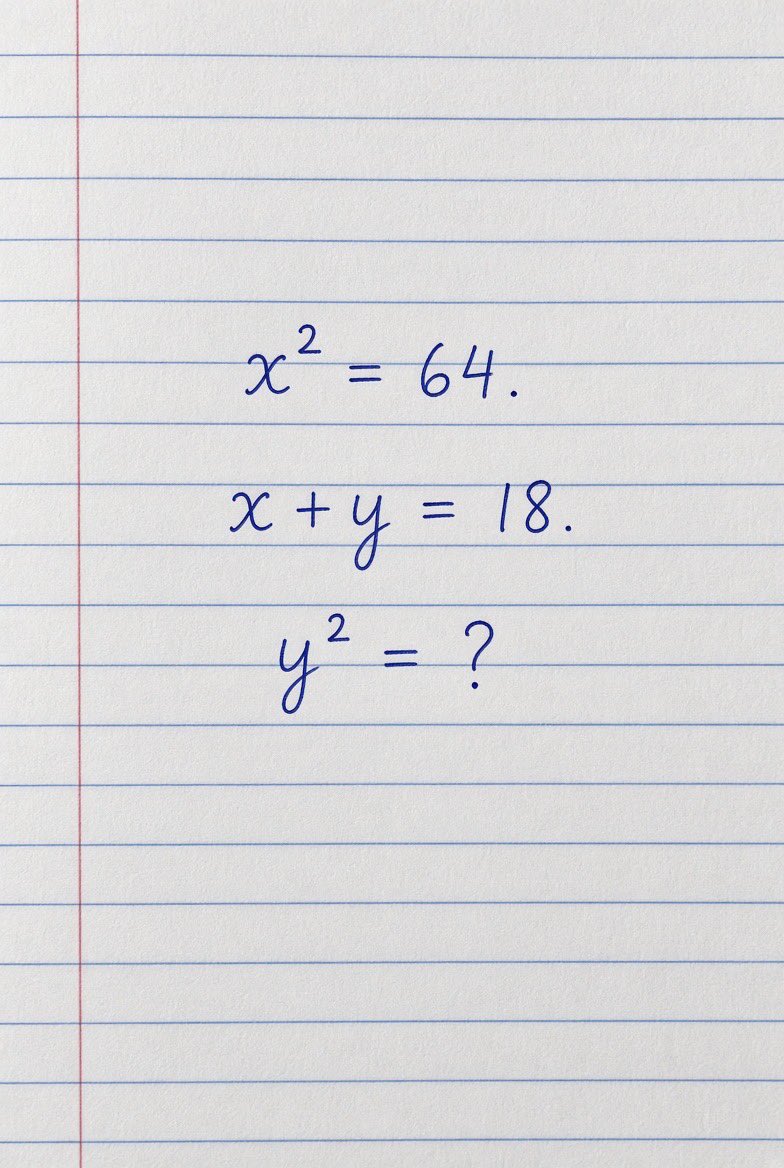 x² = 64.
x + y = 18.
y² = ?